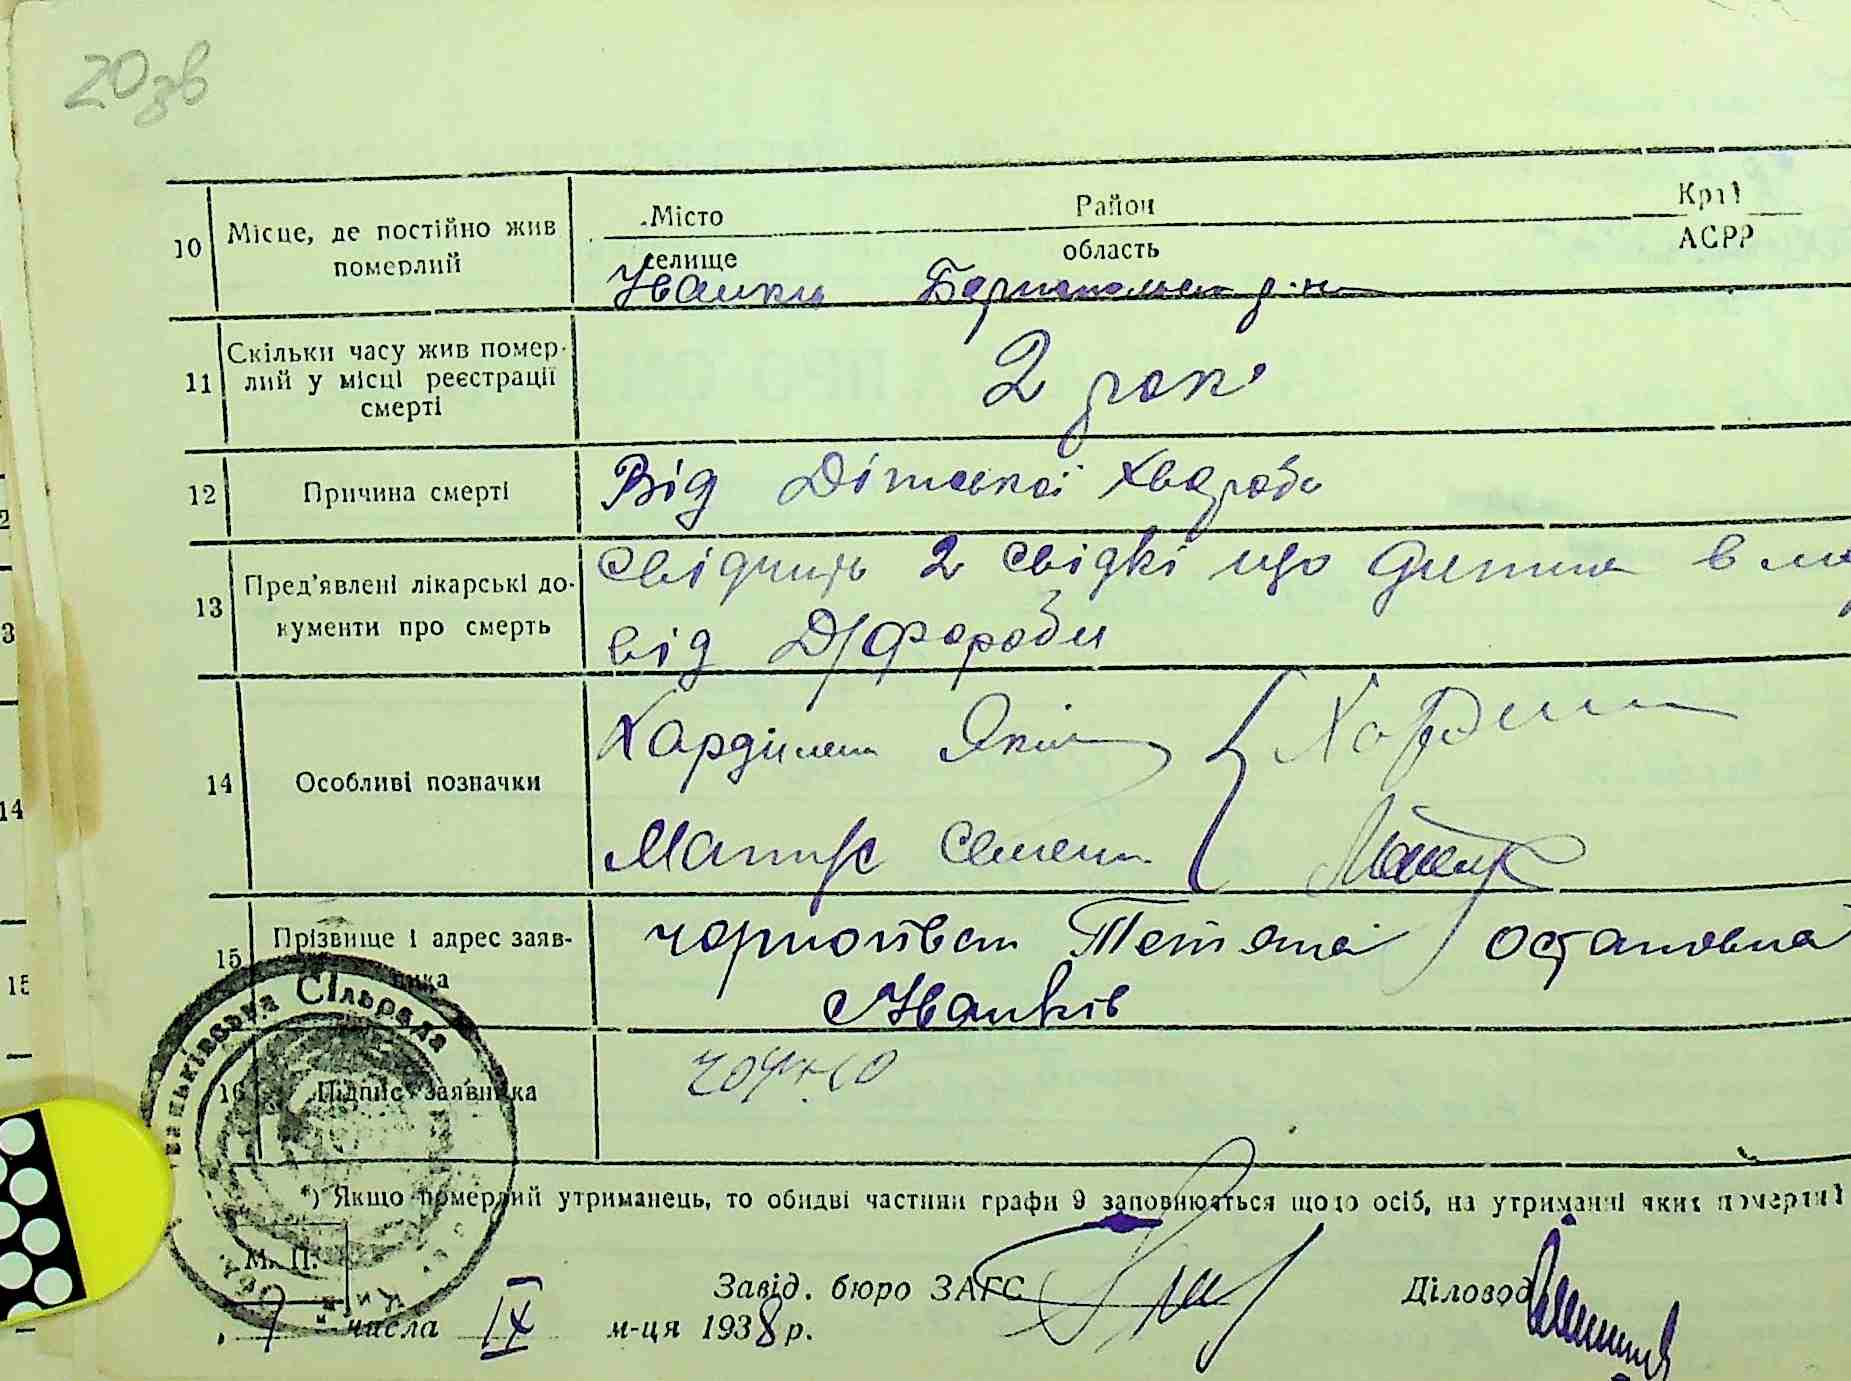 20зв
10 Місце, де постійно жив померлий
Місто Район Край
селище область АСРР
Иванки Бориспольск р-н
11 Скільки часу жив помер-
лий у місці реєстрації
смерті
2 рок
12 Причина смерті Від Дітської хвароби
13 Пред'явлені лікарські до-
кументи про смерть
Свідчить 2 свідкі що дитина в
від Д/Фороби
14 Особливі позначки
Яким
Семен
15 Прізвище і адрес заяв-
ника
Тетяна Остаповна
с Иванків
16 Підпис заявника
*) Якщо померлий утриманець, то обидві частини графи 9 заповнюються щодо осіб, на утриманні яких померлий
М. П. Завід. бюро ЗАГС Діловод
"7" числа IX м-ця 1938 р.
Сільрада